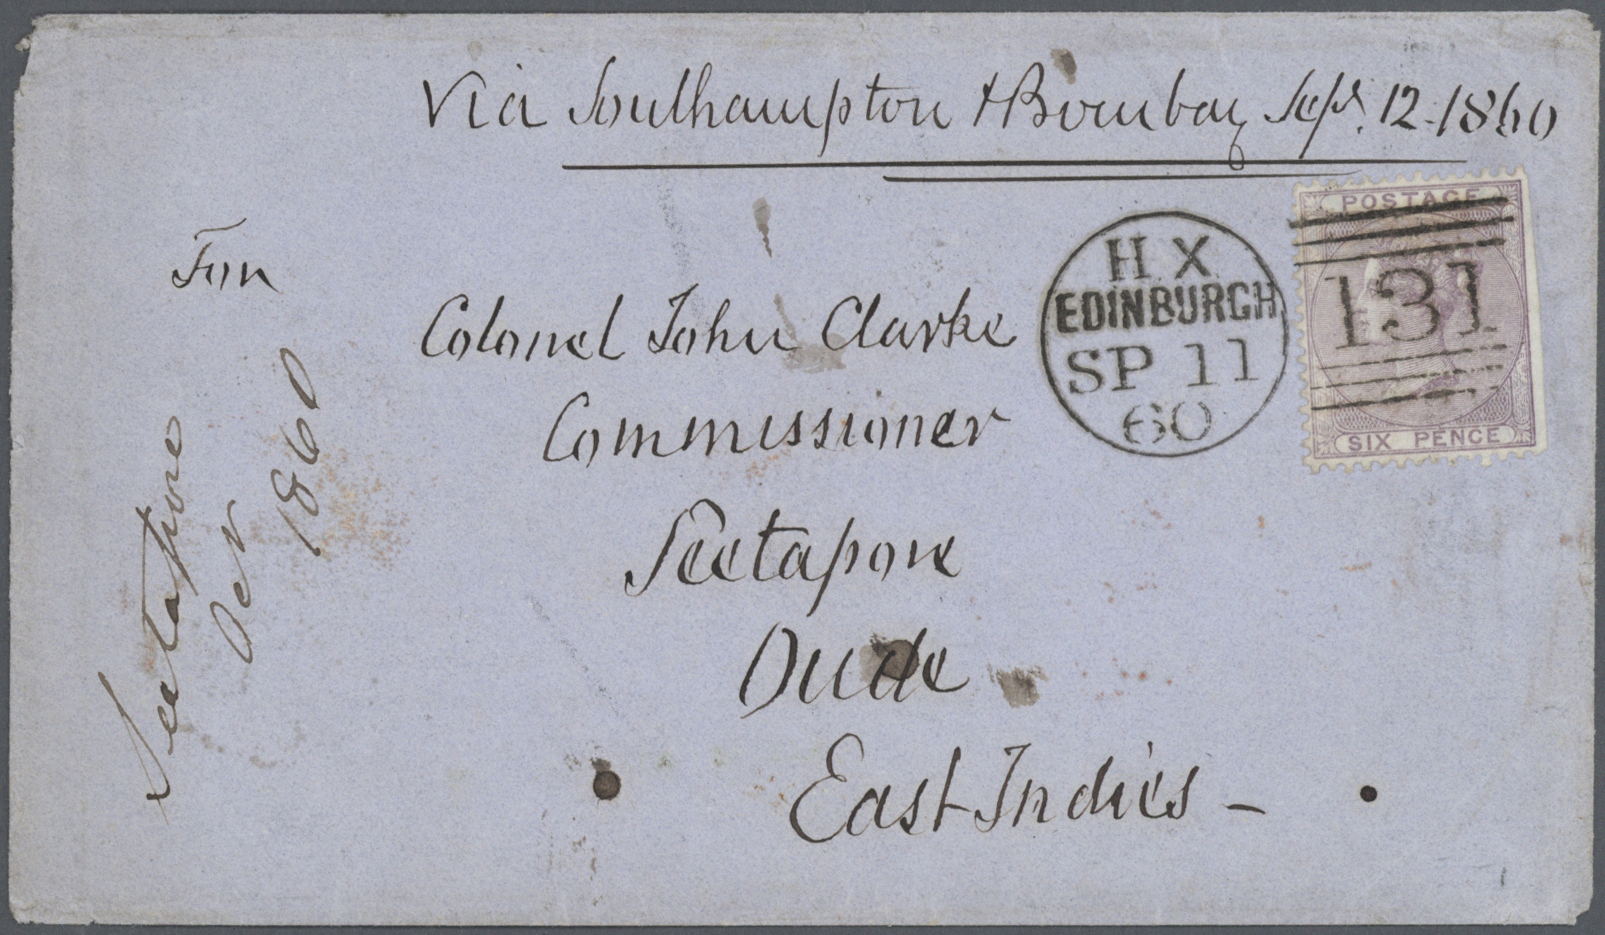 Via Southampton & Bombay Sept. 12-1860
For
Colonel John Clarke
Commissioner
Seetapore
Oude
East Indies -
Seetapore
Octr
1860
H X
EDINBURGH
SP 11
60
POSTAGE
131
SIX PENCE